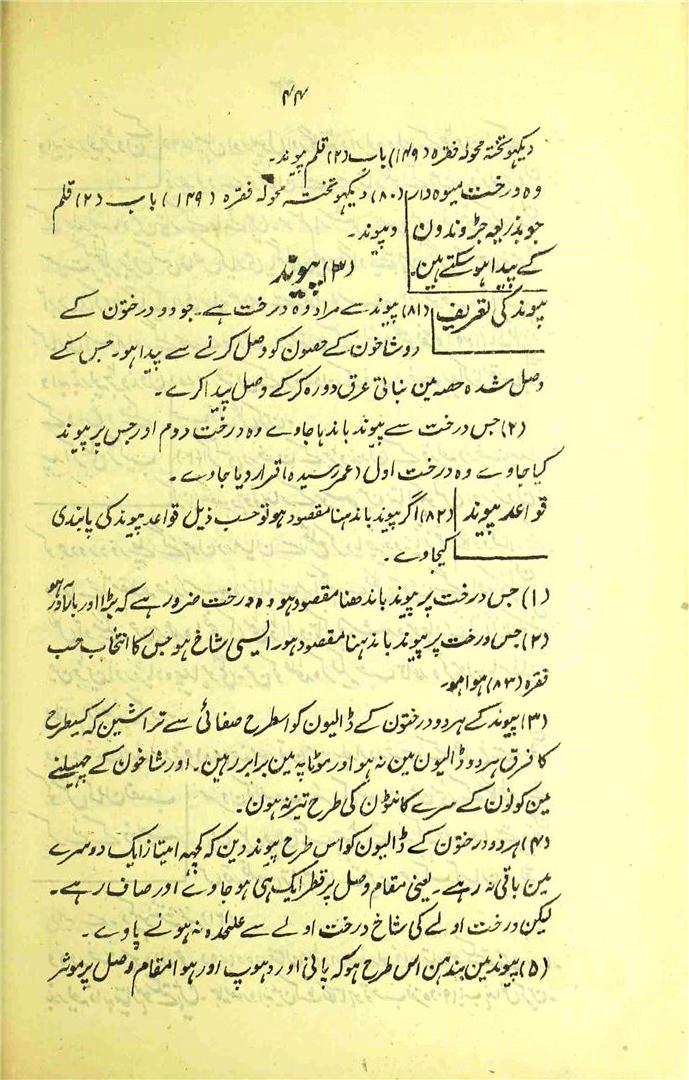 ۴۴
دیکھو تختہ محولہ فقرہ (۱۴۹) باب (۲) قلم پیوند۔
وہ درخت میوہ دار (۸۰) دیکھو تختہ محولہ فقرہ (۱۴۹) باب (۲) قلم
جو بذریعہ جڑ وندون و پیوند۔
کے پیدا ہو سکتے ہین۔
(۳) پیوند
پیوند کی تعریف (۸۱) پیوند سے مراد وہ درخت ہے۔ جو دو درختون کے
دو شاخون کے حصون کو وصل کرنے سے پیدا ہو۔ جس کے
وصل شدہ حصہ مین نباتی عرق دورہ کر کے وصل پیدا کرے۔
(۲) جس درخت سے پیوند باندہا جاوے وہ درخت دوم اور جس پر پیوند
کیا جاوے وہ درخت اول (عمر رسیدہ) قرار دیا جاوے۔
قواعد پیوند (۸۲) اگر پیوند باندہنا مقصود ہو تو حسب ذیل قواعد پیوند کی پابندی
کیجاوے۔
(۱) جس درخت پر پیوند باندھنا مقصود ہو وہ درخت ضرور ہے کہ بڑا اور بارآور ہو
(۲) جس درخت پر پیوند باندہنا مقصود ہو۔ ایسی شاخ ہو جس کا انتخاب حسب
فقرہ (۸۳) ہوا ہو۔
(۳) پیوند کے ہر دو درختون کے ڈالیون کو اسطرح صفائی سے تراشین کہ کسیطرح
کا فرق ہر دو ڈالیون مین نہ ہو اور موٹاپہ مین برابر رہین۔ اور شاخون کے چھیلنے
مین کونون کے سرے کانٹون کی طرح تیز نہ ہون۔
(۴) ہر دو درختون کے ڈالیون کو اس طرح پیوند دین کہ کچہہ امتیاز ایک دوسرے
مین باقی نہ رہے۔ یعنی مقام وصل پر قطر ایک ہی ہو جاوے اور صاف رہے۔
لیکن درخت اولے کی شاخ درخت اولے سے علحدہ نہ ہونے پاوے۔
(۵) پیوند مین بندہن اس طرح ہو کہ پانی اور دہوپ اور ہوا مقام وصل پر موثر